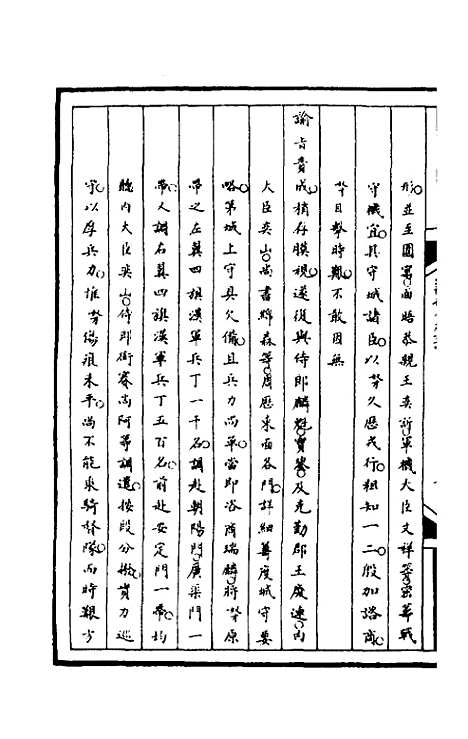 形並至圓明面晤恭親王奕訢軍機大臣文祥等密籌戰
守機宜其守城諸臣以勞久歷戎行粗知一二殷加諮商
勞目擊時艱不敢因無
諭旨責成稍存膜視遂復與侍郎麟魁寶鋆及克勤郡王慶連內
大臣奕山尚書綿森等周歷東面各門詳細籌度城守要
略第城上守具欠備且兵力尚單當即咨商瑞麟將勞原
帶之左翼四旗漢軍兵丁一千名調赴朝陽門廣渠門一
帶又調右翼四旗漢軍兵丁五百名前赴安定門一帶均
聽內大臣奕山侍郎衙 尚阿等調遣按段分撥實力巡
守以厚兵力惟勞傷痕未平尚不能乘騎督隊而時艱方